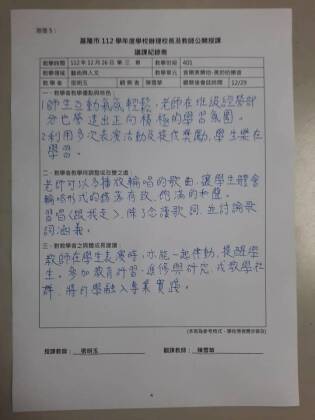 附表5：
基隆市 112 學年度學校辦理校長及教師公開授課
議課紀錄表
教學時間 112 年 12 月 26 日 第 三 節 教學班級 401
教學領域 藝術與人文 教學單元
教學者 張明玉 觀察者 陳雪華 觀察後會談時間 12/29
一、教學者教學優點與特色：
1. 師生互動氣氛輕鬆，老師在班級經營部
分也營造出正向積極的學習氛圍。
2. 利用多次表演活動及提供獎勵，學生樂在
學習。
二、教學者教學待調整或改變之處：
老師可以多播放輪唱的歌曲，讓學生體會
輪唱形式的錯落有致、飽滿的和聲。
習唱〈跟我走〉，除了念讀歌詞，並討論歌
詞涵義。
三、對教學者之具體成長建議：
教師在學生表演時，亦能一起律動，提醒學
生。參加教育研習、進修與研究，成教學社
群，將所學融入專業實踐。
(本表為參考格式，學校得視需求修改)
授課教師： 張明玉 觀課教師： 陳雪華